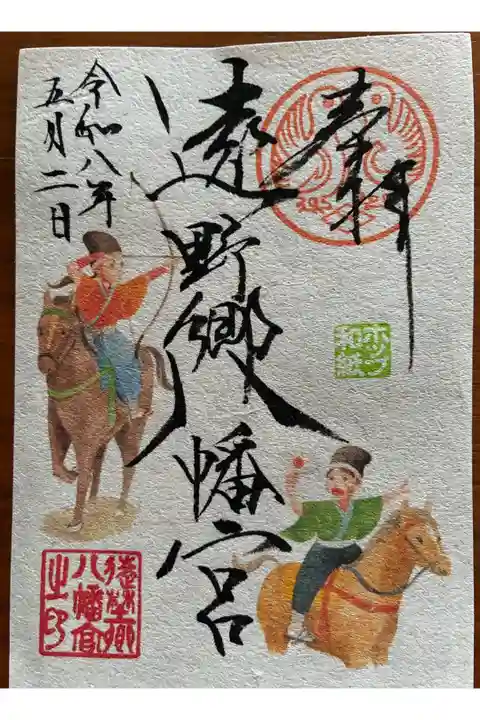 奉拝
遠野郷八幡宮
令和八年
五月二日
ホップ
和紙
遠野郷
八幡宮
之印